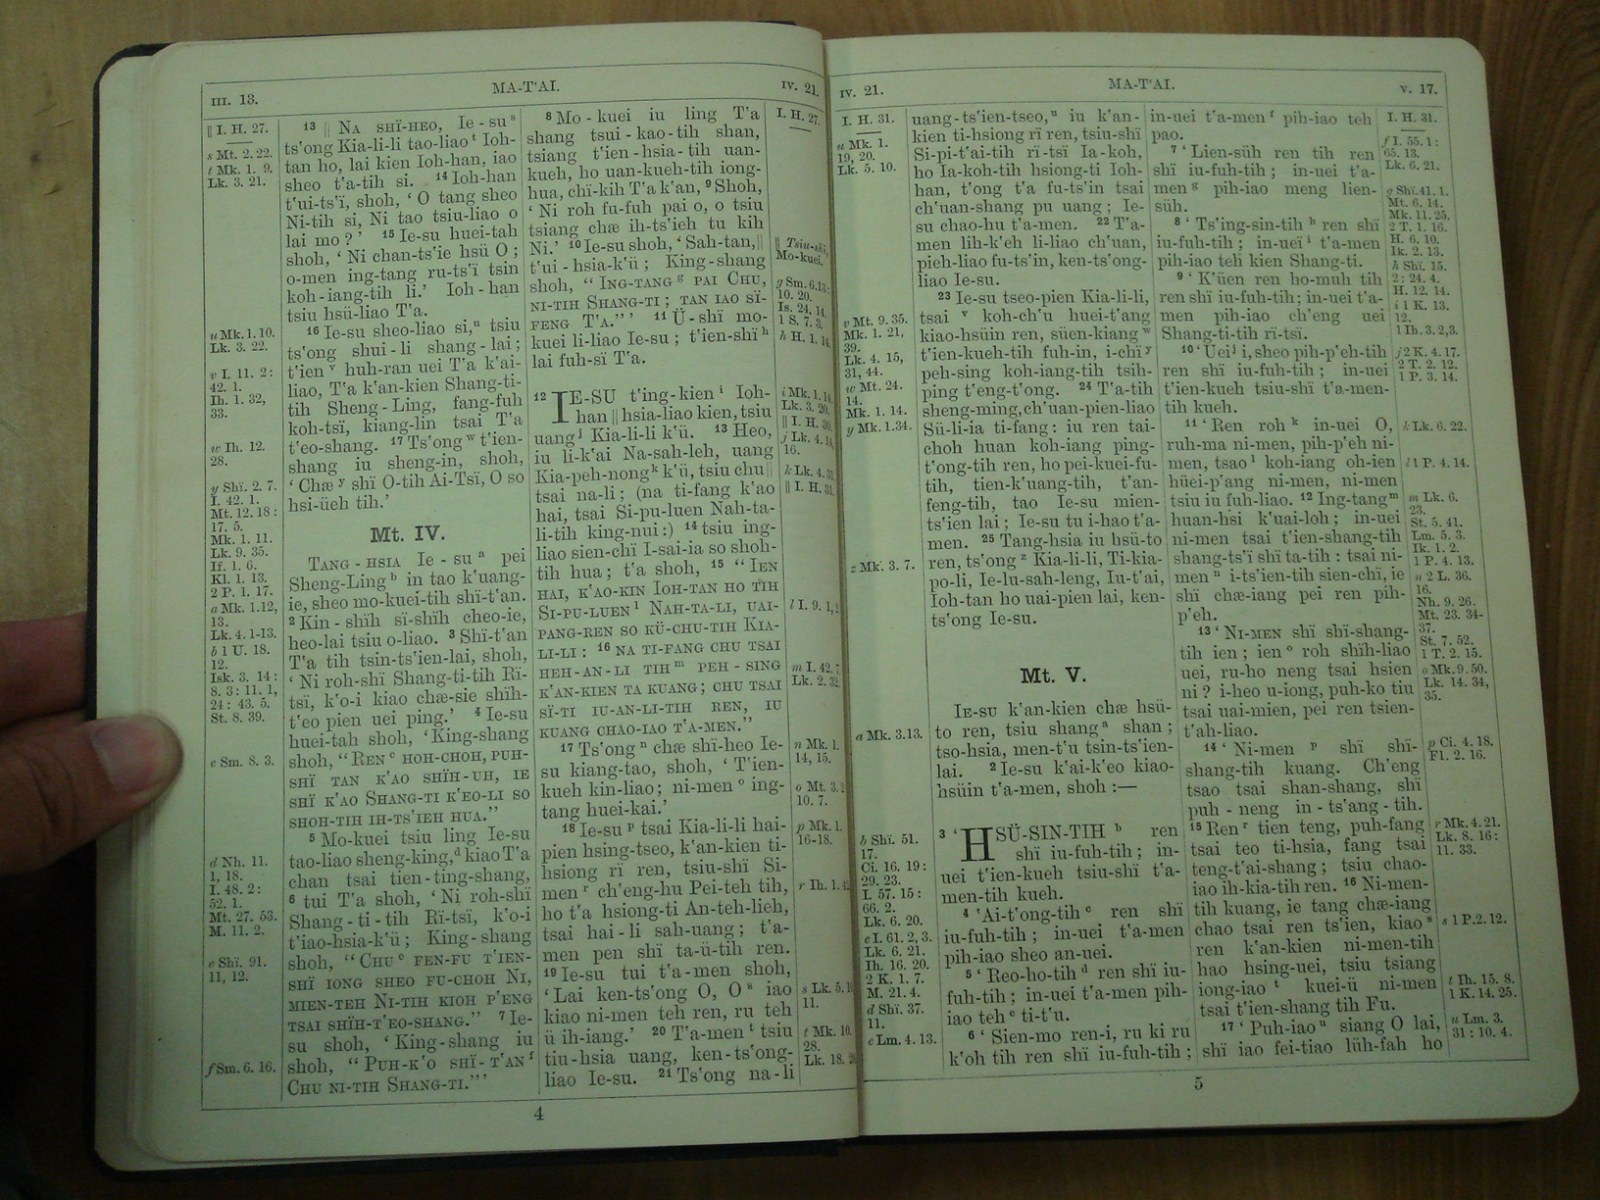 III. 13.
MA-T'AI.
IV. 21.
|| I. H. 27.
s Mt. 2. 22.
t Mk. 1. 9.
Lk. 3. 21.
u Mk. 1. 10.
Lk. 3. 22.
v I. 11. 2:
42. 1.
Ih. 1. 32,
33.
w Ih. 12.
28.
y Shï. 2. 7.
I. 42. 1.
Mt. 12. 18:
17. 5.
Mk. 1. 11.
Lk. 9. 35.
If. 1. 6.
Kl. 1. 13.
2 P. 1. 17.
a Mk. 1. 12,
13.
Lk. 4. 1-13.
b 1 U. 18.
12.
Isk. 3. 14:
8. 3: 11. 1,
24: 43. 5.
St. 8. 39.
c Sm. 8. 3.
d Nh. 11.
1, 18.
I. 48. 2:
52. 1.
Mt. 27. 53.
M. 11. 2.
e Shï. 91.
11, 12.
f Sm. 6. 16.
13 || NA SHÏ-HEO, Ie-su s
ts'ong Kia-li-li tao-liao t Ioh-
tan ho, lai kien Ioh-han, iao
sheo t'a-tih si. 14 Ioh-han
t'ui-ts'ï, shoh, ‘O tang sheo
Ni-tih si, Ni tao tsiu-liao o
lai mo?’ 15 Ie-su huei-tah
shoh, ‘Ni chan-ts'ie hsü O;
o-men ing-tang ru-ts'ï tsin
koh-iang-tih li.’ Ioh-han
tsiu hsü-liao T'a.
16 Ie-su sheo-liao si, u tsiu
ts'ong shui-li shang-lai;
t'ien v huh-ran uei T'a k'ai-
liao, T'a k'an-kien Shang-ti-
tih Sheng-Ling, fang-fuh
koh-tsï, kiang-lin tsai T'a
t'eo-shang. 17 Ts'ong w t'ien-
shang iu sheng-in, shoh,
‘Chæ y shï O-tih Ai-Tsï, O so
hsi-üeh tih.’
Mt. IV.
TANG-HSIA Ie-su a pei
Sheng-Ling b in tao k'uang-
ie, sheo mo-kuei-tih shï-t'an.
2 Kin-shïh sï-shïh cheo-ie,
heo-lai tsiu o-liao. 3 Shï-t'an
T'a tih tsin-ts'ien-lai, shoh,
‘Ni roh-shï Shang-ti-tih Rï-
tsï, k'o-i kiao chæ-sie shïh-
t'eo pien uei ping.’ 4 Ie-su
huei-tah shoh, ‘King-shang
shoh, “REN c HOH-CHOH, PUH-
SHÏ TAN K'AO SHÏH-UH, IE
SHÏ K'AO SHANG-TI K'EO-LI SO
SHOH-TIH IH-TS'IEH HUA.”
5 Mo-kuei tsiu ling Ie-su
tao-liao sheng-king, d kiao T'a
chan tsai tien-ting-shang,
6 tui T'a shoh, ‘Ni roh-shï
Shang-ti-tih Rï-tsï, k'o-i
t'iao-hsia-k'ü; King-shang
shoh, “CHU e FEN-FU T'IEN-
SHÏ IONG SHEO FU-CHOH NI,
MIEN-TEH NI-TIH KIOH P'ENG
TSAI SHÏH-T'EO-SHANG.” 7 Ie-
su shoh, ‘King-shang iu
shoh, “PUH-K'O SHÏ-T'AN f
CHU NI-TIH SHANG-TI.”’
8 Mo-kuei iu ling T'a
shang tsui-kao-tih shan,
tsiang t'ien-hsia-tih uan-
kueh, ho uan-kueh-tih iong-
hua, chï-kih T'a k'an, 9 Shoh,
‘Ni roh fu-fuh pai o, o tsiu
tsiang chæ ih-ts'ieh tu kih
Ni.’ 10 Ie-su shoh, ‘Sah-tan, ||
t'ui-hsia-k'ü; King-shang
shoh, “ING-TANG g PAI CHU,
NI-TIH SHANG-TI; TAN IAO SÏ-
FENG T'A.”’ 11 Ü-shï mo-
kuei li-liao Ie-su; t'ien-shï h
lai fuh-sï T'a.
12 IE-SU t'ing-kien i Ioh-
han || hsia-liao kien, tsiu
uang j Kia-li-li k'ü. 13 Heo,
iu li-k'ai Na-sah-leh, uang
Kia-peh-nong k k'ü, tsiu chu ||
tsai na-li; (na ti-fang k'ao
hai, tsai Si-pu-luen Nah-ta-
li-tih king-nui:) 14 tsiu ing-
liao sien-chï I-sai-ia so shoh-
tih hua; t'a shoh, 15 “IEN
HAI, K'AO-KIN IOH-TAN HO TIH
SI-PU-LUEN l NAH-TA-LI, UAI-
PANG-REN SO KÜ-CHU-TIH KIA-
LI-LI: 16 NA TI-FANG CHU TSAI
HEH-AN-LI TIH m PEH-SING
K'AN-KIEN TA KUANG; CHU TSAI
SÏ-TI IU-AN-LI-TIH REN, IU
KUANG CHAO-IAO T'A-MEN.”
17 Ts'ong n chæ shï-heo Ie-
su kiang-tao, shoh, ‘T'ien-
kueh kin-liao; ni-men o ing-
tang huei-kai.’
18 Ie-su p tsai Kia-li-li hai-
pien hsing-tseo, k'an-kien ti-
hsiong rï ren, tsiu-shï Si-
men r ch'eng-hu Pei-teh tih,
ho t'a hsiong-ti An-teh-lieh,
tsai hai-li sah-uang; t'a-
men pen shï ta-ü-tih ren.
19 Ie-su tui t'a-men shoh,
‘Lai ken-ts'ong O, O s iao
kiao ni-men teh ren, ru teh
ü ih-iang.’ 20 T'a-men t tsiu
tiu-hsia uang, ken-ts'ong-
liao Ie-su. 21 Ts'ong na-li
I. H. 27.
|| Tsiu-shï
Mo-kuei.
g Sm. 6. 13:
10. 20.
Is. 24. 14.
1 S. 7. 3.
h H. 1. 14.
i Mk. 1. 14.
Lk. 3. 20.
|| I. H. 30.
j Lk. 4. 14,
16.
k Lk. 4. 31.
|| I. H. 31.
l I. 9. 1,
m I. 42. 7.
Lk. 2. 32.
n Mk. 1.
14, 15.
o Mt. 3. 2:
10. 7.
p Mk. 1.
16-18.
r Ih. 1. 42.
s Lk. 5. 10,
11.
t Mk. 10.
28.
Lk. 18.
4
IV. 21.
MA-T'AI.
V. 17.
I. H. 31.
u Mk. 1.
19, 20.
Lk. 5. 10.
v Mt. 9. 35.
Mk. 1. 21,
39.
Lk. 4. 15,
31, 44.
w Mt. 24.
14.
Mk. 1. 14.
y Mk. 1. 34.
z Mk. 3. 7.
a Mk. 3. 13.
b Shï. 51.
17.
Ci. 16. 19:
29. 23.
I. 57. 15:
66. 2.
Lk. 6. 20.
c I. 61. 2, 3.
Lk. 6. 21.
Ih. 16. 20.
2 K. 1. 7.
M. 21. 4.
d Shï. 37.
11.
e Lm. 4. 13.
uang-ts'ien-tseo, u iu k'an-
kien ti-hsiong rï ren, tsiu-shï
Si-pi-t'ai-tih rï-tsï Ia-koh,
ho Ia-koh-tih hsiong-ti Ioh-
han, t'ong t'a fu-ts'in tsai
ch'uan-shang pu uang; Ie-
su chao-hu t'a-men. 22 T'a-
men lih-k'eh li-liao ch'uan,
pieh-liao fu-ts'in, ken-ts'ong-
liao Ie-su.
23 Ie-su tseo-pien Kia-li-li,
tsai v koh-ch'u huei-t'ang
kiao-hsüin ren, süen-kiang w
t'ien-kueh-tih fuh-in, i-chï y
peh-sing koh-iang-tih tsih-
ping t'eng-t'ong. 24 T'a-tih
sheng-ming, ch'uan-pien-liao
Sü-li-ia ti-fang: iu ren tai-
choh huan koh-iang ping-
t'ong-tih ren, ho pei-kuei-fu-
tih, tien-k'uang-tih, t'an-
feng-tih, tao Ie-su mien-
ts'ien lai; Ie-su tu i-hao t'a-
men. 25 Tang-hsia iu hsü-to
ren, ts'ong z Kia-li-li, Ti-kia-
po-li, Ie-lu-sah-leng, Iu-t'ai,
Ioh-tan ho uai-pien lai, ken-
ts'ong Ie-su.
Mt. V.
IE-SU k'an-kien chæ hsü-
to ren, tsiu shang a shan;
tso-hsia, men-t'u tsin-ts'ien-
lai. 2 Ie-su k'ai-k'eo kiao-
hsüin t'a-men, shoh:—
3 ‘HSÜ-SIN-TIH b ren
shï iu-fuh-tih; in-
uei t'ien-kueh tsiu-shï t'a-
men-tih kueh.
4 ‘Ai-t'ong-tih c ren shï
iu-fuh-tih; in-uei t'a-men
pih-iao sheo an-uei.
5 ‘Reo-ho-tih d ren shï iu-
fuh-tih; in-uei t'a-men pih-
iao teh e ti-t'u.
6 ‘Sien-mo ren-i, ru ki ru
k'oh tih ren shï iu-fuh-tih;
in-uei t'a-men f pih-iao teh
pao.
7 ‘Lien-süh ren tih ren
shï iu-fuh-tih; in-uei t'a-
men g pih-iao meng lien-
süh.
8 ‘Ts'ing-sin-tih h ren shï
iu-fuh-tih; in-uei i t'a-men
pih-iao teh kien Shang-ti.
9 ‘K'üen ren ho-muh tih
ren shï iu-fuh-tih; in-uei t'a-
men pih-iao ch'eng uei
Shang-ti-tih rï-tsï.
10 ‘Uei j i, sheo pih-p'eh-tih
ren shï iu-fuh-tih; in-uei
t'ien-kueh tsiu-shï t'a-men-
tih kueh.
11 ‘Ren roh k in-uei O,
ruh-ma ni-men, pih-p'eh ni-
men, tsao l koh-iang oh-ien
hüei-p'ang ni-men, ni-men
tsiu iu fuh-liao. 12 Ing-tang m
huan-hsi k'uai-loh; in-uei
ni-men tsai t'ien-shang-tih
shang-ts'ï shï ta-tih: tsai ni-
men n i-ts'ien-tih sien-chï, ie
shï chæ-iang pei ren pih-
p'eh.
13 ‘NI-MEN shï shï-shang-
tih ien; ien o roh shïh-liao
uei, ru-ho neng tsai hsien
ni? i-heo u-iong, puh-ko tiu
tsai uai-mien, pei ren tsien-
t'ah-liao.
14 ‘Ni-men p shï shï-
shang-tih kuang. Ch'eng
tsao tsai shan-shang, shï
puh-neng in-ts'ang-tih.
15 Ren r tien teng, puh-fang
tsai teo ti-hsia, fang tsai
teng-t'ai-shang; tsiu chao-
iao ih-kia-tih ren. 16 Ni-men-
tih kuang, ie tang chæ-iang
chao tsai ren ts'ien, kiao s
ren k'an-kien ni-men-tih
hao hsing-uei, tsiu tsiang
iong-iao t kuei-ü ni-men
tsai t'ien-shang tih Fu.
17 ‘Puh-iao u siang O lai,
shï iao fei-tiao lüh-fah ho
I. H. 31.
f I. 55. 1:
65. 13.
Lk. 6. 21.
g Shï. 41. 1.
Mt. 6. 14.
Mk. 11. 25.
2 T. 1. 16.
H. 6. 10.
Ik. 2. 13.
h Shï. 15.
2: 24. 4.
H. 12. 14.
i 1 K. 13.
12.
1 Ih. 3. 2, 3.
j 2 K. 4. 17.
2 T. 2. 12.
1 P. 3. 14.
k Lk. 6. 22.
l 1 P. 4. 14.
m Lk. 6.
23.
St. 5. 41.
Lm. 5. 3.
Ik. 1. 2.
1 P. 4. 13.
n 2 L. 36.
16.
Nh. 9. 26.
Mt. 23. 34-
37.
St. 7. 52.
1 T. 2. 15.
o Mk. 9. 50.
Lk. 14. 34,
35.
p Ci. 4. 18.
Fl. 2. 16.
r Mk. 4. 21.
Lk. 8. 16:
11. 33.
s 1 P. 2. 12.
t Ih. 15. 8.
1 K. 14. 25.
u Lm. 3.
31: 10. 4.
5